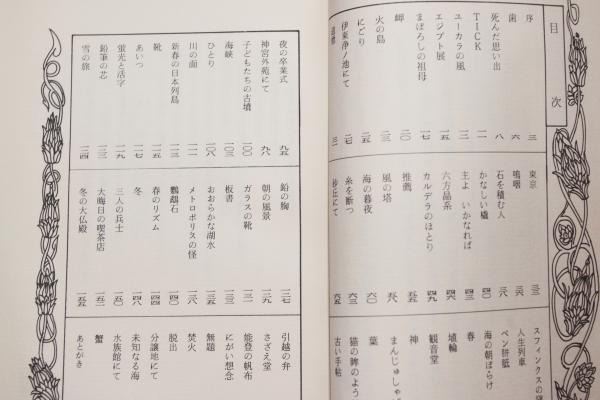 目次
序 三
歯 六
死んだ思い出 八
TICK 一一
ユーカラの風 一三
エジプト展 一五
まぼろしの祖母 一七
岬 二〇
火の島 二三
にごり 二五
伊東浄ノ池にて 二七
東京 三三
嗚咽
石を積む人 三八
かなしい橇 四〇
主よ いかなれば 四三
六方晶系 四六
カルデラのほとり 四九
推薦 五五
風の塔 五八
海の暮夜 六〇
糸を断つ 六三
砂丘にて 六五
スフィンクスの
人生列車
ペン胼胝
海の朝ぼらけ
春
埴輪
観音堂
神
まんじゅしゃげ
葉
猫の眸のよう
古い手帖
夜の卒業式 九五
神宮外苑にて 九八
子どもたちの古墳 一〇〇
海峡 一〇三
ひとり 一〇八
川の面 一一一
新春の日本列島 一一三
靴 一一五
あいつ 一一七
蛍光と活字 一一九
鉛筆の芯 一二一
雪の旅 一二四
鉛の胸 一二七
朝の風景 一二九
ガラスの靴 一三一
板書 一三三
おおらかな湖水 一三六
メトロポリスの怪 一三八
鸚鵡石 一四〇
春のリズム 一四四
冬 一四八
三人の兵士 一五〇
大晦日の喫茶店 一五二
冬の大仏殿 一五五
引越の弁
さざえ堂
能登の帆布
にがい想念
無題
焚火
脱出
分譲地にて
未知なる海
水族館にて
蟹
あとがき